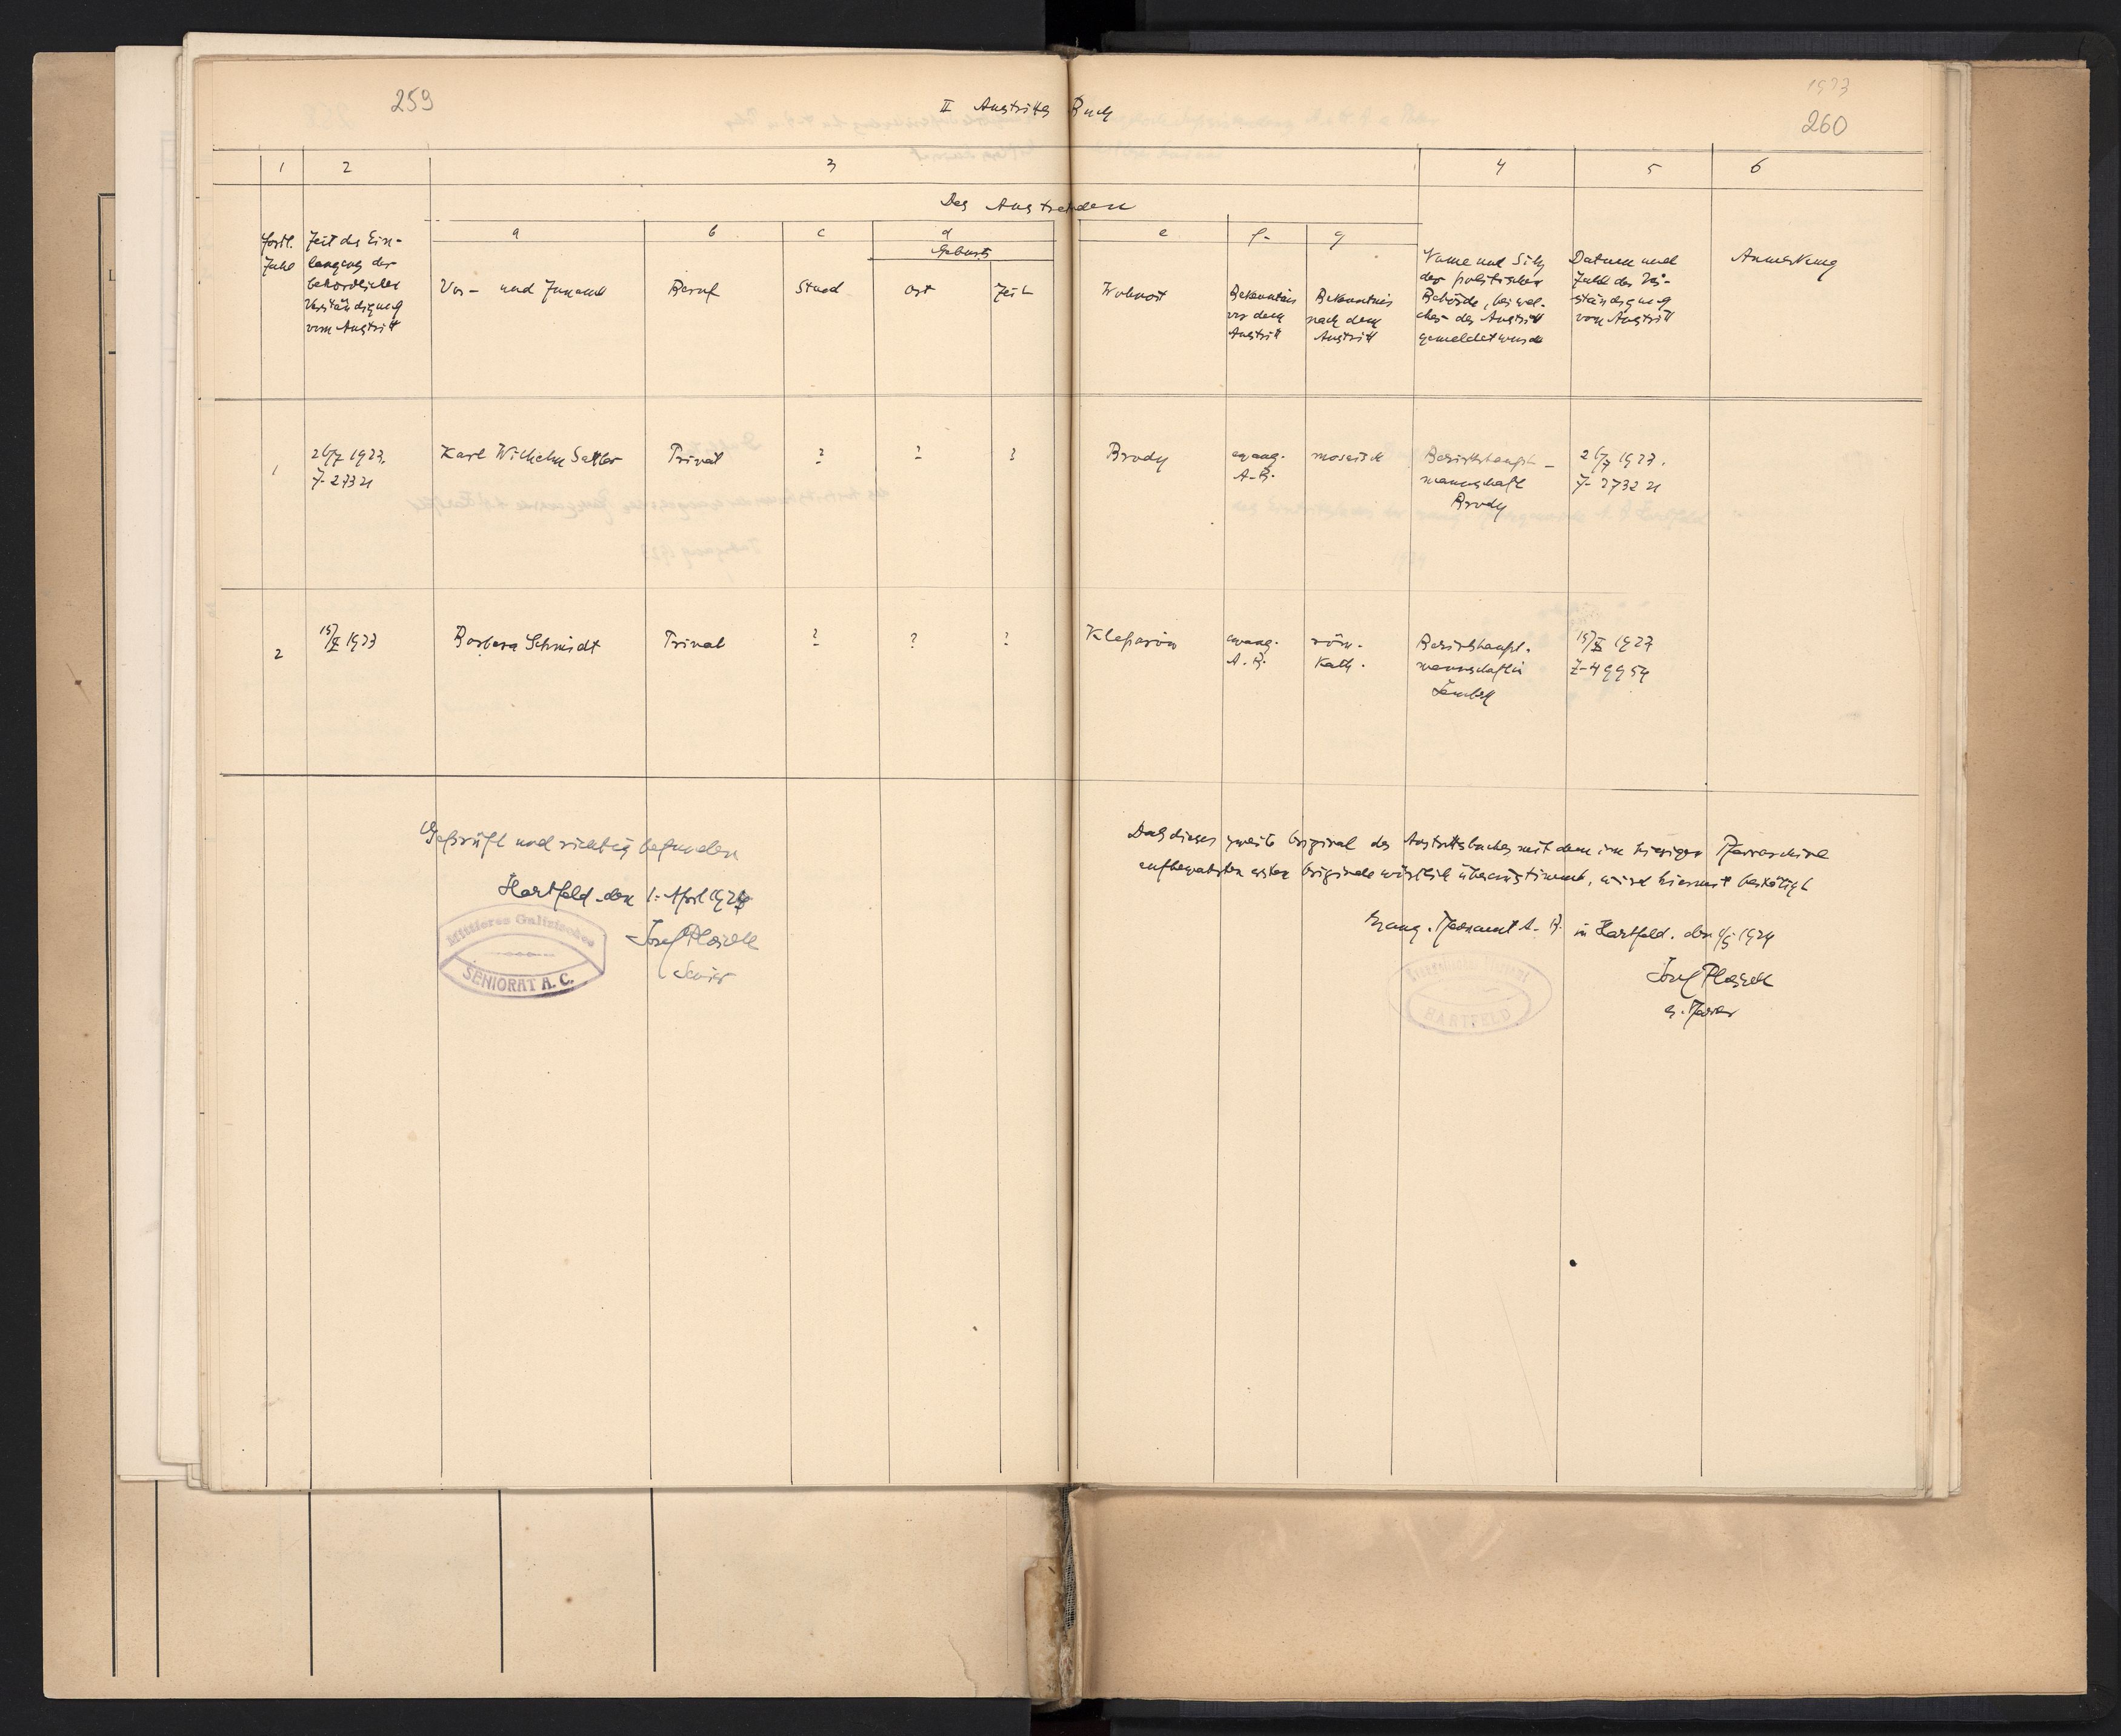 259
II Austritts Buch
1923
260
1 2 3 4 5 6
Des Austretenden
a b c d e f. g
Geburts
Fortl.
Zahl
Zeit des Ein-
langens der
behördlichen
Verständigung
vom Austritt
Vor- und Zuname
Beruf
Stand
Ort
Zeit
Wohnort
Bekenntnis
vor dem
Austritt
Bekenntnis
nach dem
Austritt
Name und Sitz
der politischen
Behörde, bei wel-
cher der Austritt
gemeldet wurde
Datum und
Zahl der Ver-
ständigung
vom Austritt
Anmerkung
1
26/7 1923.
Z- 27321
Karl Wilhelm Satler
Privat
?
?
?
Brody
evang.
A.B.
mosaisch
Bezirkshaupt-
mannschaft
Brody
26/7 1923.
Z- 27321
2
15/X 1923
Barbara Schmidt
Privat
?
?
?
Kleparów
evang.
A.B.
röm.
Kath.
Bezirkshaupt-
mannschaft in
Lemberg
15/X 1923
Z-49954
Geprüft und richtig befunden
Hartfeld den 1. April 1924
Josef Ploszek
Senior
Mittleres Galizisches
SENIORAT A. C.
Das dieses zweite Original des Austrittsbuches mit dem im hiesigen Pfarrarchive
aufbewahrten ersten Originale wörtlich übereinstimmt, wird hiermit bestätigt
Evang. Pfarramt A. B. in Hartfeld. den 1924
Josef Ploszek
ev. Pfarrer
HARTFELD